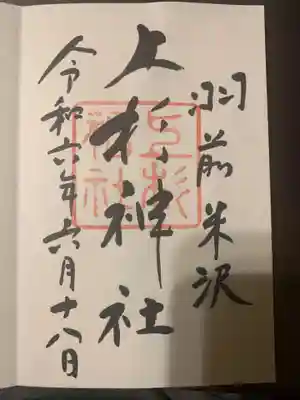 羽前米沢
上杉神社
令和六年六月十八日
上杉
神社